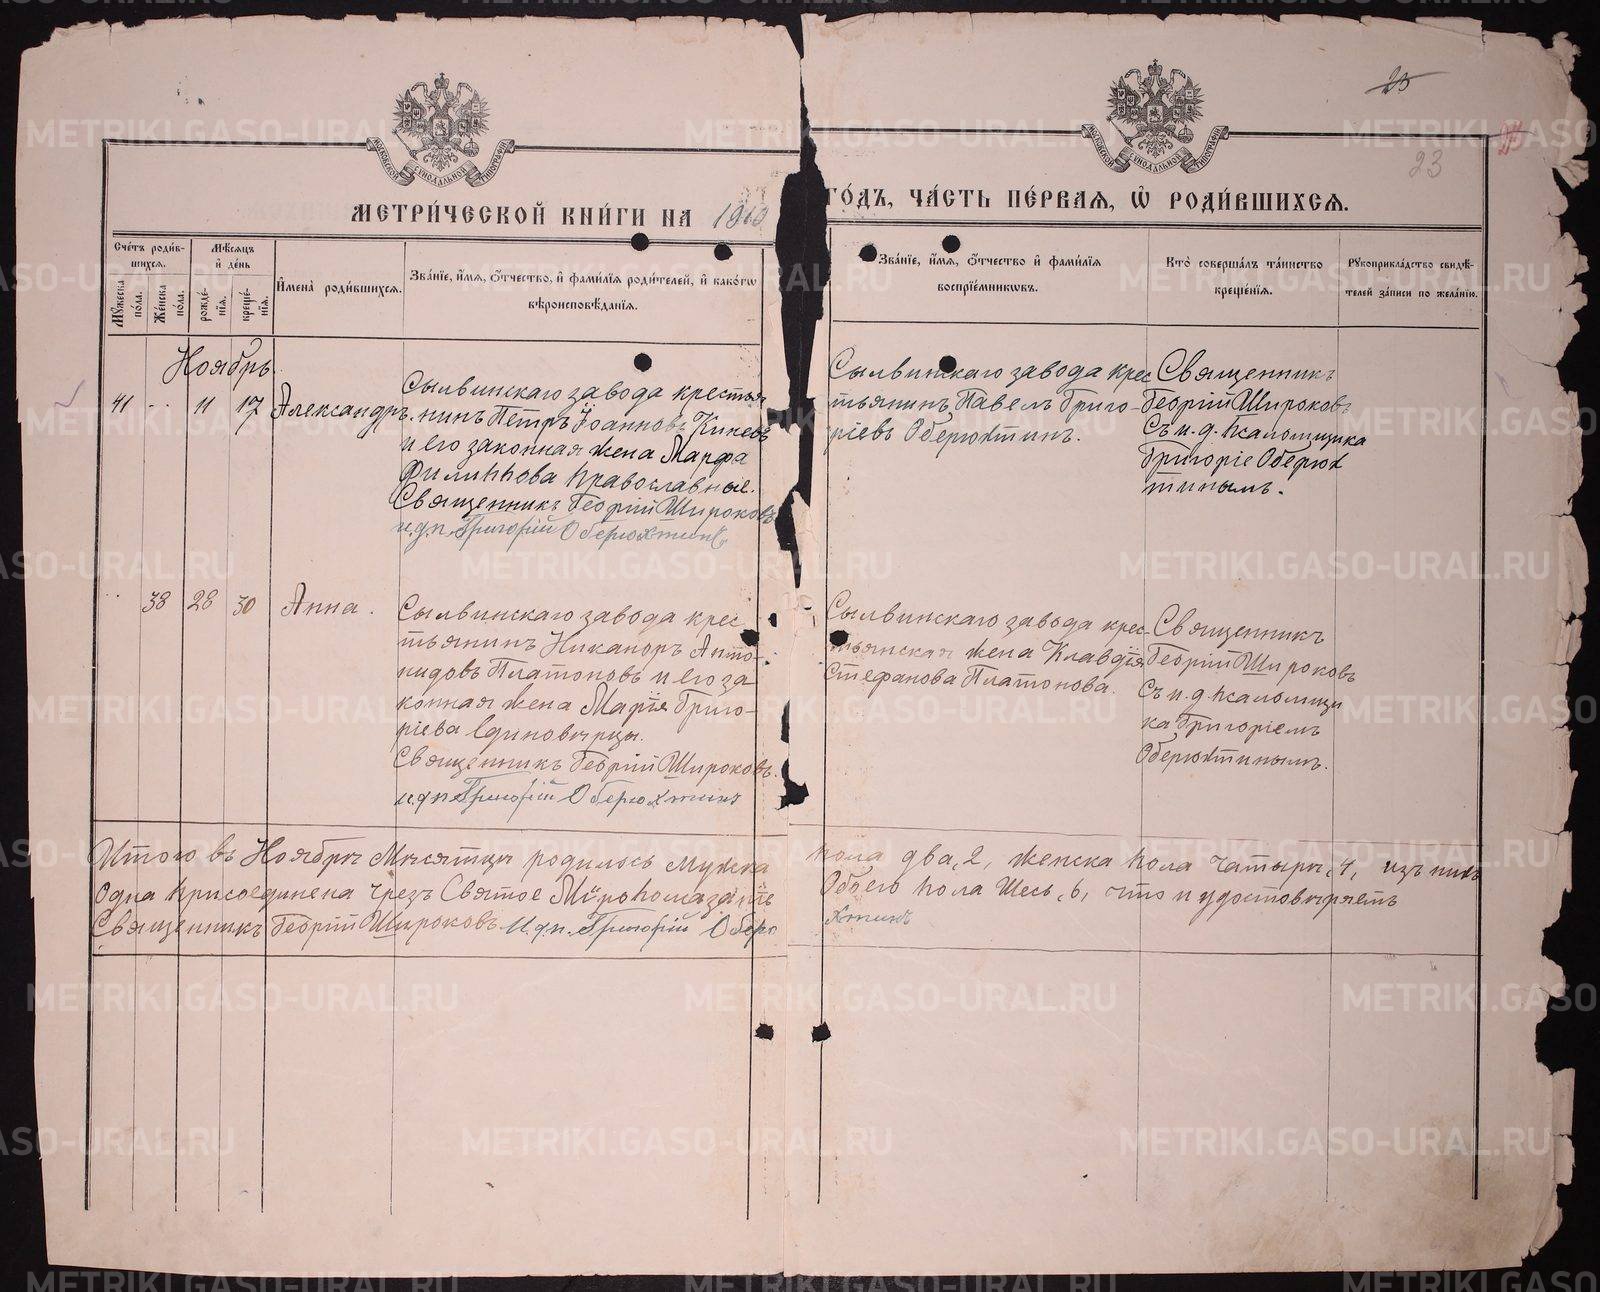 25
23
МОСКОВСКОЙ СУНОДАЛЬНОЙ ТИПОГРАФІИ
МОСКОВСКОЙ СУНОДАЛЬНОЙ ТИПОГРАФІИ
МЕТРИ́ЧЕСКОЙ КНИ́ГИ НА 1910 ГО́ДЪ, ЧА́СТЬ ПЕ́РВАЯ, Ѽ РОДИ́ВШИХСЯ.
Сче́тъ роди́вшихся.
Му́жеска по́ла.
Же́нска по́ла.
Мѣ́сяцъ и҆ де́нь
рожде́нїѧ.
креще́нїѧ.
И҆мена̀ роди́вшихся.
Зва́нїе, и҆́мѧ, ѻ҆́тчество, и҆ фами́лїѧ роди́телей, и҆ како́гѡ вѣроисповѣ́данїѧ.
Зва́нїе, и҆́мѧ, ѻ҆́тчество и҆ фами́лїѧ воспрїе́мникѡвъ.
Кто̀ соверша́лъ та́инство креще́нїѧ.
Рꙋкоприкла́дство свидѣ́телей за́писи по жела́нїю.
Ноябрь
41 11 17 Александръ.
Сылвинскаго завода крестья
нинъ Петръ Іоанновъ Киневъ
и его законная жена Марфа
Филиппова православные.
Священникъ Георгій Широковъ
и.д.п. Григорій Оберюхтинъ
Сылвинскаго завода крес
тьянинъ Павелъ Григо-
ріевъ Оберюхтинъ.
Священникъ
Георгій Широковъ
Съ и.д. псаломщика
Григоріе Оберюх
тинымъ.
38 28 30 Анна.
Сылвинскаго завода крес
тьянинъ Никаноръ Анто-
нидовъ Платоновъ и его за
конная жена Марія Григо-
ріева Единоверцы.
Священникъ Георгій Широковъ.
и.д.п. Григорій Оберюхтинъ
Сылвинскаго завода крес-
тьянская жена Клавдія
Стефанова Платонова.
Священникъ
Георгій Широковъ
Съ и.д. псаломщи
ка Григоріемъ
Оберюхтинымъ.
Итого въ Ноябре Месяце родилось мужска пола два, 2, женска пола Четыре, 4, изъ нихъ
Одна присоединена чрезъ Святое Мѵропомазаніе Обоего пола Шесь, 6, что и удостоверяетъ
Священникъ Георгій Широковъ И.д.п. Григорій Оберюхтинъ
METRIKI.GASO-URAL.RU